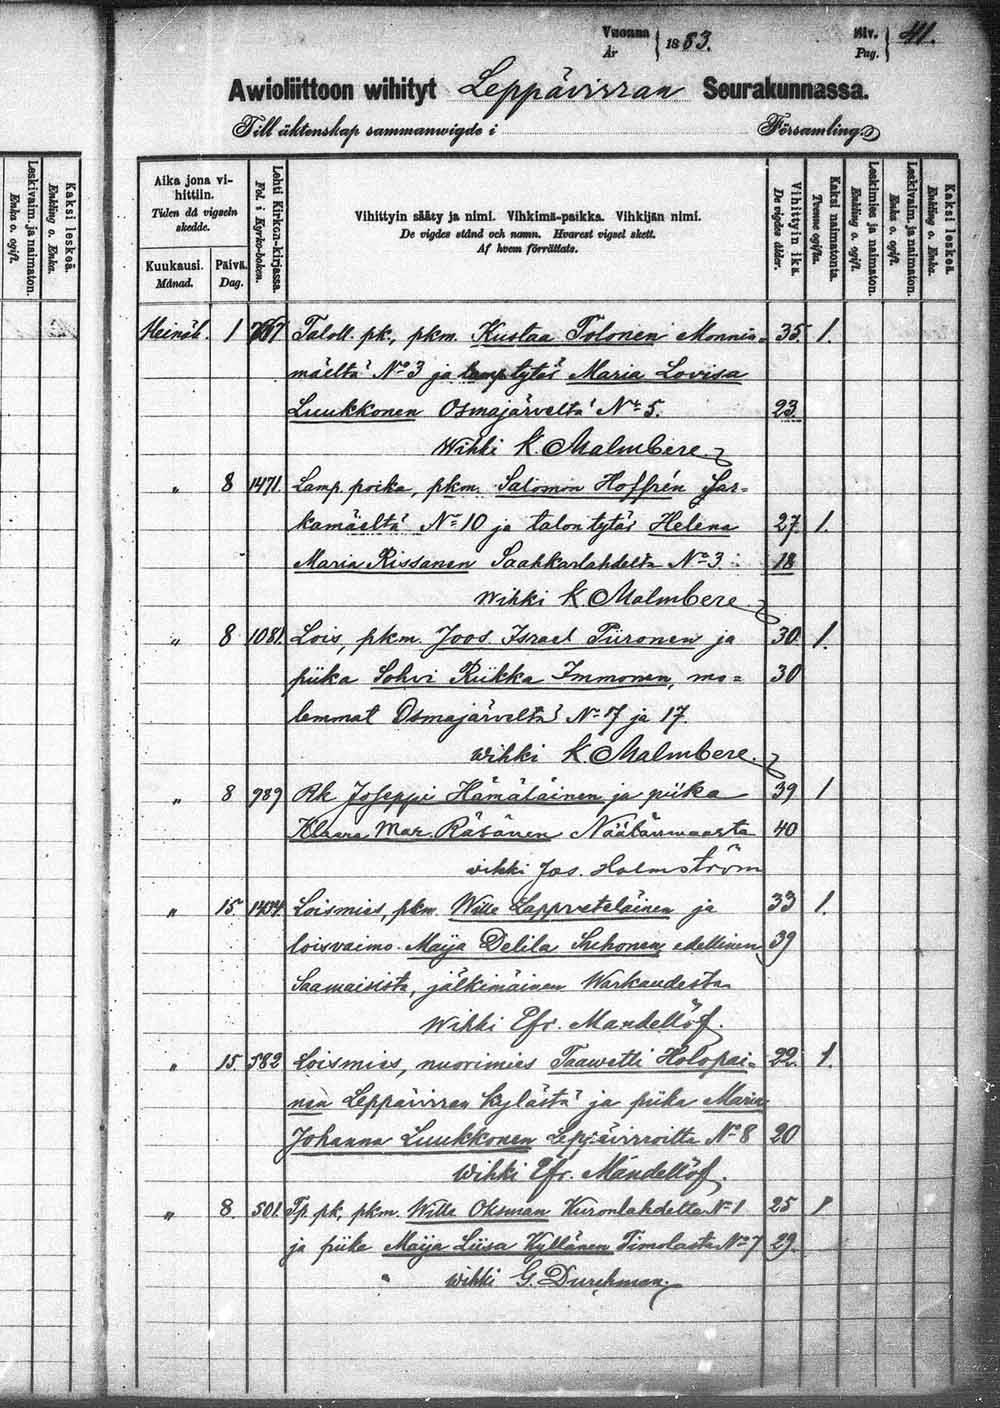 Vuonna 1883. Siv. 41.
År Pag.
Awioliittoon wihityt Leppävirran Seurakunnassa.
Till äktenskap sammanwigde i Församling.
Aika jona vihittiin.
Tiden då vigseln skedde.
Kuukausi. Päivä.
Månad. Dag.
Lehti Kirkon-kirjassa.
Fol. i Kyrko-boken.
Vihittyin sääty ja nimi. Vihkimä-paikka. Vihkijän nimi.
De vigdes stånd och namn. Hvarest vigsel skett.
Af hvem förrättats.
Vihittyin ikä.
De vigdes ålder.
Kaksi naimatonta.
Tvenne ogifta.
Leskimies ja naimaton.
Enkling o. ogift.
Leskivaim. ja naimaton.
Enka o. ogift.
Kaksi leskeä.
Enkling o. Enka.
Leskivaim. ja naimaton.
Enka o. ogift.
Kaksi leskeä.
Enkling o. Enka.
Heinäk. 1 Taloll. pk., pkm. Kustaa Tolonen Monnin- 35. 1.
mäeltä No 3 ja tytär Maria Lovisa
Luukkonen Osmajärveltä No 5. 23.
Wihki K. Malmberg
" 8 1471. Lamp. poika, pkm. Salomon Hoffrén Sar-
kamäeltä No 10 ja talon tytär Helena 27. 1.
Maria Rissanen Saahkarlahdelta No 3. 18
Wihki K. Malmberg
" 8 1081. Lois, pkm. Joos. Israel Piironen ja 30. 1.
piika Sohvi Riikka Immonen, mo= 30
lemmat Osmajärveltä No 7 ja 17.
Wihki K. Malmberg
" 8 989 Rk Joseppi Hämäläinen ja piika 39 1
Klaara Mar. Räsänen Näätänmaasta 40
vihki Jos. Holmström
" 15. 1434. Loismies, pkm. Wille Lappveteläinen ja 33 1.
loisvaimo Maija Delila Suhonen, edellinen 39
Saamaisista, jälkimäinen Warkaudesta
Wihki Efr. Mandellöf.
" 15. 582 Loismies, nuorimies Taawetti Holopai- 22. 1.
nen Leppävirran kylästä ja piika Maria
Johanna Luukkonen No 8 20
Wihki Efr. Mandellöf.
" 8. 501. Tp. pk, pkm. Wille Oksman Kuronlahdelta No 1 25 1
ja piika Maija Liisa Kyllänen Timolasta No 7 29.
" wihki G. Durchman.